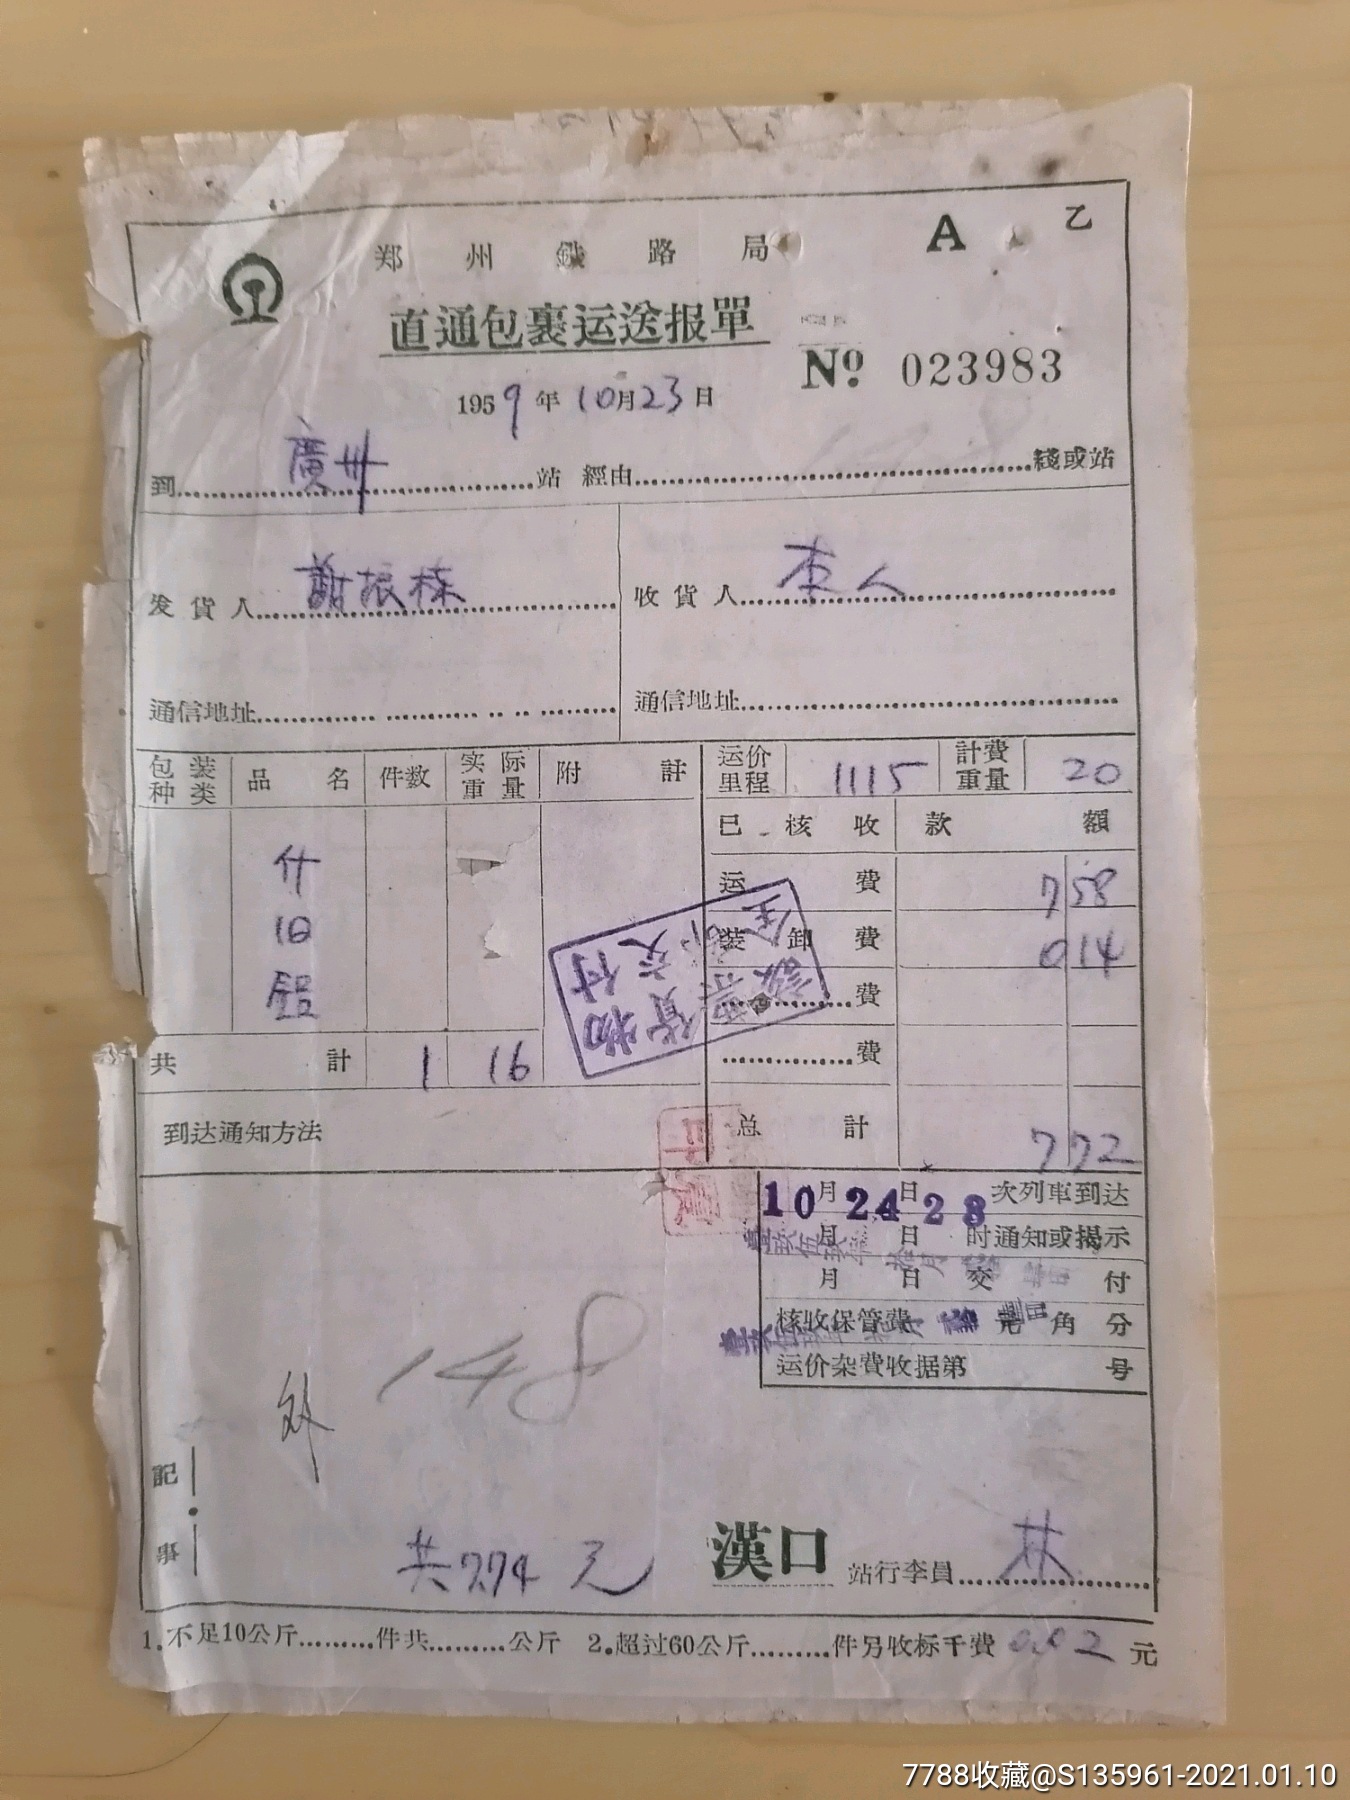 A 乙
郑州鉄路局
直通包裹运送报單
No 023983
1959年10月23日
到廣州站 經由綫或站
发货人 謝振棟 收货人 本人
通信地址 通信地址
包装种类 品名 件数 实际重量 附註 运价里程 1115 計費重量 20
已核收款額
什 运費 7 58
旧 装卸費 0 14
鋁 費
共計 1 16 費
到达通知方法 总計 7 72
該票貨物
全部交付
10月24日28次列車到达
月日时通知或揭示
月日交付
核收保管費元角分
运价杂費收据第号
148
記事
共7.74元
漢口站行李員 林
1.不足10公斤件共公斤 2.超过60公斤件另收标千費0.02元
7788收藏@S135961-2021.01.10